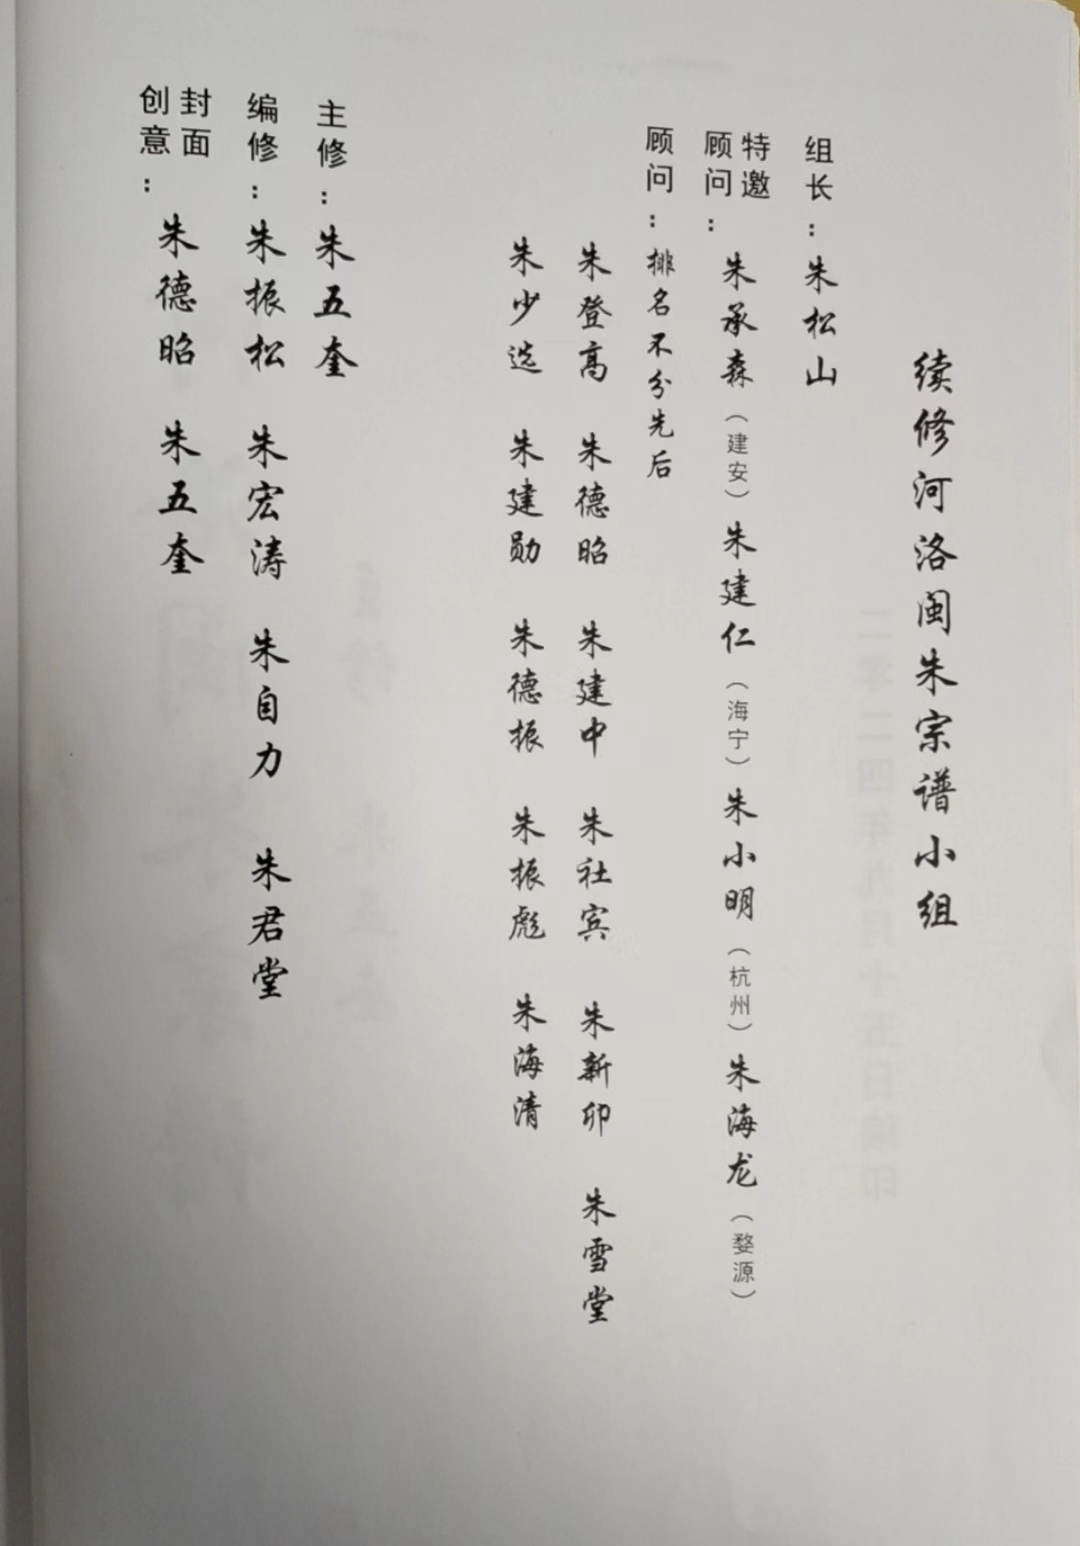 续修河洛闽朱宗谱小组
组长：朱松山
特邀
顾问：朱承森（建安）朱建仁（海宁）朱小明（杭州）朱海龙（婺源）
顾问：排名不分先后
朱登高 朱德昭 朱建中 朱社宾 朱新卯 朱雪堂
朱少选 朱建勋 朱德振 朱振彪 朱海清
主修：朱五奎
编修：朱振松 朱宏涛 朱自力 朱君堂
封面
创意：朱德昭 朱五奎
二零二四年九月十五日结印